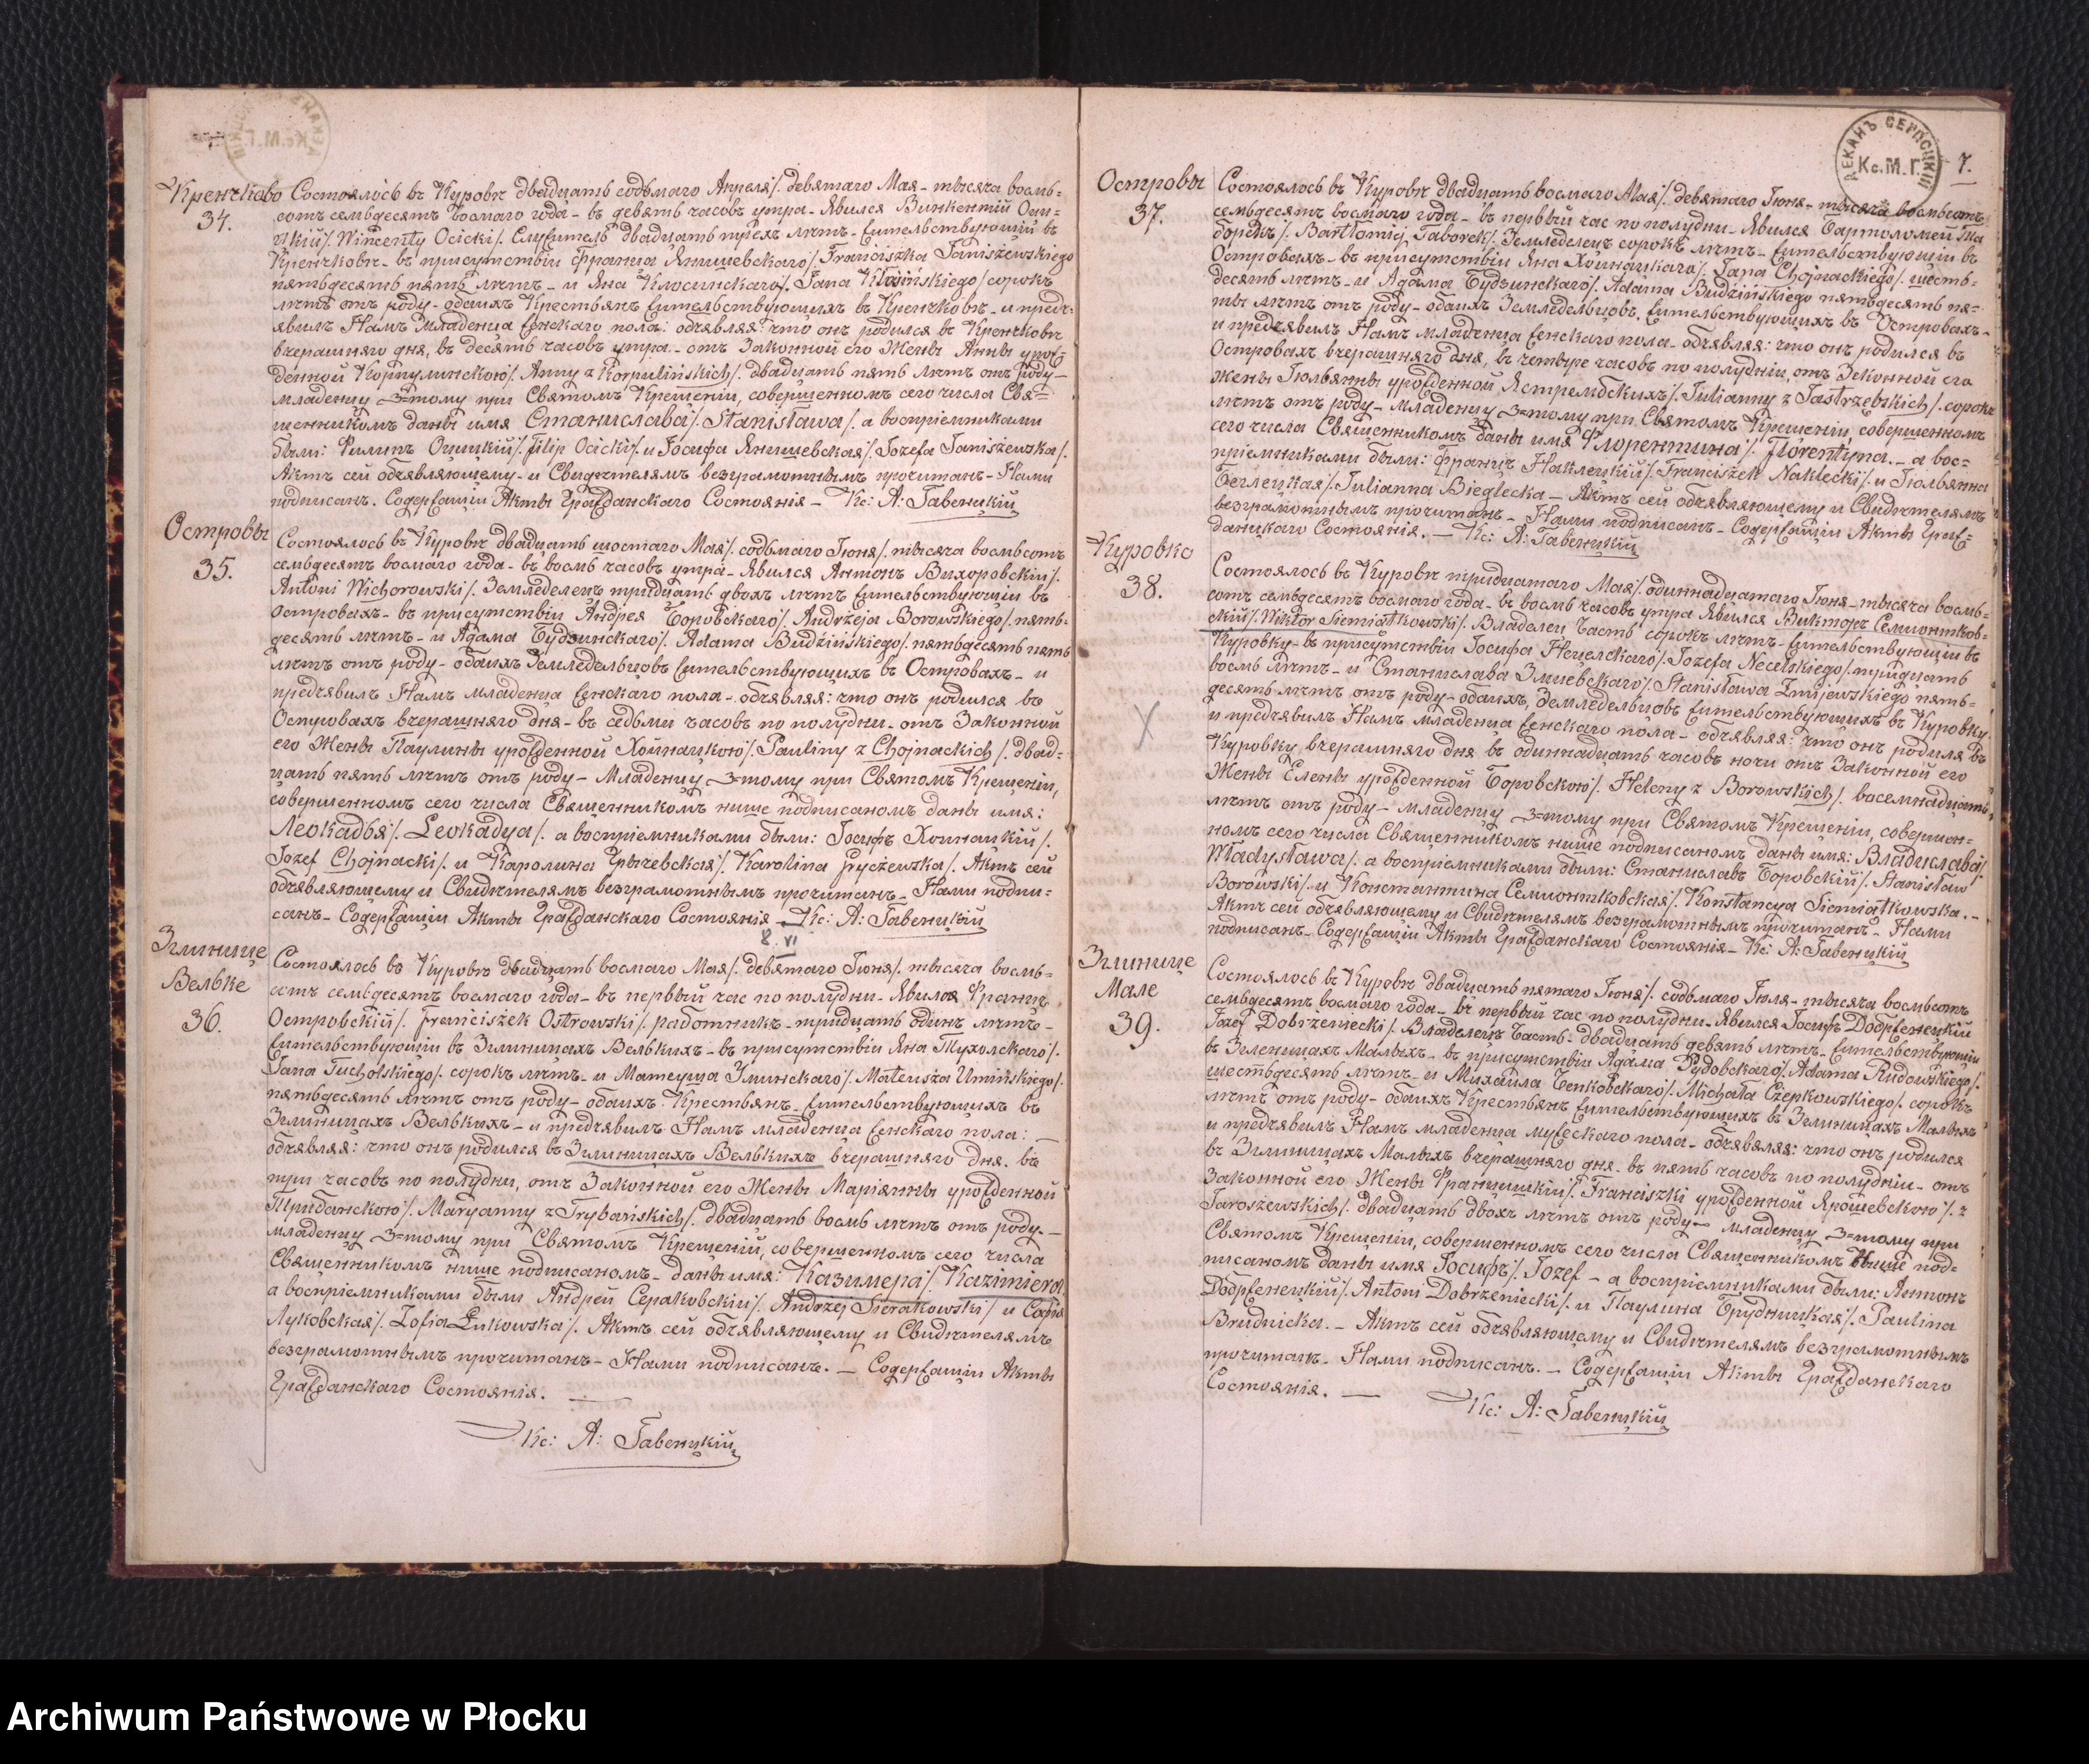 Кренчково
34.
Состоялось въ Куровѣ двадцать седьмаго Апреля/. девятаго Мая - тысяча восемь=
сотъ семьдесятъ восмаго года - въ девять часовъ утра - Явился Винкентій Оци=
цкій/. Wincenty Ocicki/. Служитель двадцать трехъ лѣтъ - жительствующій въ
Кренчковѣ - въ присутствіи Франца Янишевскаго/. Franciszka Janiszewskiego
пятьдесятъ пять лѣтъ - и Яна Клосинскаго/. Jana Kłosińskiego/ сорокъ
лѣтъ отъ роду - обаихъ Крестьянъ жительствующихъ въ Кренчковѣ - и предъ=
явилъ Намъ Младенца женскаго пола: объявляя: что онъ родился въ Кренчковѣ
вчерашняго дня, въ десять часовъ утра - отъ Законной его Жены Анны урож=
денной Корпулинскою/. Anny z Korpulińskich/. двадцать пять лѣтъ отъ роду -
младенцу Э=тому при Святомъ Крещеніи, совершенномъ сего числа Свя=
щенникомъ даны имя Станислава/. Stanisława/. а воспріемниками
были: Филипъ Оцицкій/. Filip Ocicki/. и Іосифа Янишевская/. Jozefa Janiszewska/.
Актъ сей объявляющему - и Свидѣтелямъ безграмотнымъ прочитанъ - Нами
подписанъ. Содержащій Акты Гражданскаго Состоянія - Кс: А: Габенцкій
Островы
35.
Состоялось въ Куровѣ двадцать шостаго Мая/. седьмаго Іюня/. тысяча восемьсотъ
семьдесятъ восмаго года - въ восмь часовъ утра - Явился Антонъ Вихоровскій/.
Antoni Wichorowski/. Земледелецъ тридцать двохъ лѣтъ жительствующій въ
Островахъ - въ присутствіи Андрея Боровскаго/. Andrzeja Borowskiego/. пять=
десятъ лѣтъ - и Адама Будзинскаго/. Adama Budzińskiego/. пятьдесятъ пять
лѣтъ отъ роду - обаихъ Земледельцовъ жительствующихъ въ Островахъ - и
предъявилъ Намъ младенца женскаго пола - объявляя: что онъ родился въ
Островахъ вчерашняго дня - въ седьми часовъ по полудни - отъ Законной
его Жены Паулины урожденной Хойнацкою/. Pauliny z Chojnackich/. двад=
цать пять лѣтъ отъ роду - Младенцу Э=тому при Святомъ Крещеніи,
совершенномъ сего числа Священникомъ ниже подписаномъ даны имя:
Леокадья/. Leokadya/. а воспріемниками были: Іосифъ Хоинацкій/.
Jozef Chojnacki/. и Каролина Грычевская/. Karolina Gryczewska/. Актъ сей
объявляющему и Свидѣтелямъ безграмотнымъ прочитанъ - Нами подпи=
санъ - Содержащій Акты Гражданскаго Состоянія - Кс: А: Габенцкій
8. VI
Зглинице
Вельке
36.
Состоялось въ Куровѣ двадцать восмаго Мая/. девятаго Іюня/. тысяча восемь=
сотъ семьдесятъ восмаго года - въ первый час по полудни - Явился Францъ
Островскій/. Franciszek Ostrowski/. работникъ - тридцать одинъ лѣтъ -
жительствующій въ Зглиницахъ Велькихъ - въ присутствіи Яна Тухолскаго/.
Jana Tucholskiego/. сорокъ лѣтъ - и Матеуша Уминскаго/. Mateusza Umińskiego/.
пятьдесятъ лѣтъ отъ роду - обаихъ Крестьянъ - жительствующихъ въ
Зглиницахъ Велькихъ - и предъявилъ Намъ младенца женскаго пола: -
объявляя: что онъ родился въ Зглиницахъ Велькихъ вчерашняго дня. въ
три часовъ по полудни, отъ Законной его Жены Маріянны урожденной
Трибанскою/. Maryanny z Trybańskich/. двадцать восмь лѣтъ отъ роду. -
младенцу Э=тому при Святомъ Крещеній, совершенномъ сего числа
Священникомъ ниже подписаномъ - даны имя: Казимера/. Kazimiera
а воспріемниками были Андрей Сераковскій/. Andrzej Sierakowski/ и Софія
Луковская/. Zofia Łukowska/. Актъ сей объявляющему и Свидѣтелямъ
безграмотнымъ прочитанъ - Нами подписанъ. - Содержащій Акты
Гражданскаго Состоянія. -
Кс: А: Габенцкій
ДЕКАНЪ СЕРПСЦКІЙ
Кс. М. Г.
7.
Островы
37.
Состоялось въ Куровѣ двадцать восмаго Мая/. девятаго Іюня - тысяча восемьсотъ
семьдесятъ восмаго года - въ первый час по полудни - Явился Бартоломей Та
борекъ/. Bartłomiej Taborek/. Земледелецъ сорокъ лѣтъ - жительствующій въ
Островахъ - въ присутствіи Яна Хойнацкаго/. Jana Chojnackiego/. шесть=
десятъ лѣтъ - и Адама Будзинскаго/. Adama Budzińskiego пятьдесятъ пя=
ты лѣтъ отъ роду - обаихъ Земледельцовъ, жительствующихъ въ Островахъ -
и предъявилъ Намъ младенца женскаго пола - объявляя: что онъ родился въ
Островахъ вчерашняго дня, въ четыре часовъ по полудніи, отъ Законной его
жены Юльянны урожденной Ястрембскихъ/. Julianny z Jastrzębskich/. сорокъ
лѣтъ отъ роду - Младенцу Э=тому при Святомъ Крещеніи, совершенномъ
сего числа Священникомъ даны имя Флорентина/. Florentyna. - а вос=
пріемниками были: Францъ Наклецкій/. Franciszek Naklecki/. и Юльянна
Беглецкая/. Julianna Bieglecka - Актъ сей объявляющему и Свидѣтелямъ
безграмотнымъ прочитанъ - Нами подписанъ - Содержащій Акты Граж=
данскаго Состоянія. - Кс: А: Габенцкій
Куровко
38.
Состоялось въ Куровѣ тридцатаго Мая/. одиннадцатаго Іюня - тысяча восемь=
сотъ семьдесятъ восмаго года - въ восмь часовъ утра Явился Викторъ Семіонтков=
скій/. Wiktor Siemiątkowski/. Владелец Часть сорокъ лѣтъ - жительствующій въ
Куровку - въ присутствіи Іосифа Нецелскаго/. Jozefa Necelskiego/. тридцать
восмь лѣтъ - и Станислава Змиевскаго/. Stanisława Zmijewskiego пять=
десятъ лѣтъ отъ роду - обаихъ Земледельцовъ жительствующихъ въ Куровку
и предъявилъ Намъ младенца женскаго пола - объявляя: что онъ родиля въ
Куровку вчерашняго дня въ одиннадцать часовъ ночи отъ Законной его
Жены Елены урожденной Боровскою/. Heleny z Borowskich/. восемнадцать
лѣтъ отъ роду - младенцу Э=тому при Святомъ Крещеніи, совершен=
номъ сего числа Священникомъ ниже подписаномъ даны имя: Владислава/.
Władysława/. а воспріемниками были: Станиславъ Боровскій/. Stanisław
Borowski/. и Константина Семионтковская/. Konstancya Siemiątkowska. -
Актъ сей объявляющему и Свидѣтелямъ безграмотнымъ прочитанъ - Нами
подписанъ - Содержащій Акты Гражданскаго Состоянія - Кс: А: Габенцкій
Зглинице
Мале
39.
Состоялось въ Куровѣ двадцать пятаго Іюня/. седьмаго Іюля - тысяча восемьсотъ
семьдесятъ восмаго года - въ первый час по полудни - Явился Іосифъ Добрженецкій
Jozef Dobrzeniecki/. Владелецъ Часть - двадцать девять лѣтъ - жительствующій
въ Зглиницахъ Малыхъ - въ присутствіи Адама Рудовскаго/. Adama Rudowskiego/.
шестьдесятъ лѣтъ - и Михаила Ченковскаго/. Michała Czepkowskiego/. сорокъ
лѣтъ отъ роду - обаихъ Крестьянъ жительствующихъ въ Зглиницахъ Малыхъ
и предъявилъ Намъ младенца мужескаго пола - объявляя: что онъ родился
въ Зглиницахъ Малыхъ вчерашняго дня - въ пять часовъ по полудніи - отъ
Законной его Жены Францишкій/. Franciszki урожденной Ярошевскою/. z
Jaroszewskich/. двадцать двохъ лѣтъ отъ роду - младенцу Э=тому при
Святомъ Крещеніи, совершенномъ сего числа Священникомъ Ниже под=
писаномъ даны имя Іосифъ/. Jozef - а воспріемниками были: Антонъ
Добрженецкій/. Antoni Dobrzeniecki/. и Паулина Брудницкая/. Paulina
Brudnicka. - Актъ сей объявляющему и Свидѣтелямъ безграмотнымъ
прочитанъ - Нами подписанъ. - Содержащій Акты Гражданскаго
Состоянія. - Кс: А: Габенцкій
Archiwum Państwowe w Płocku